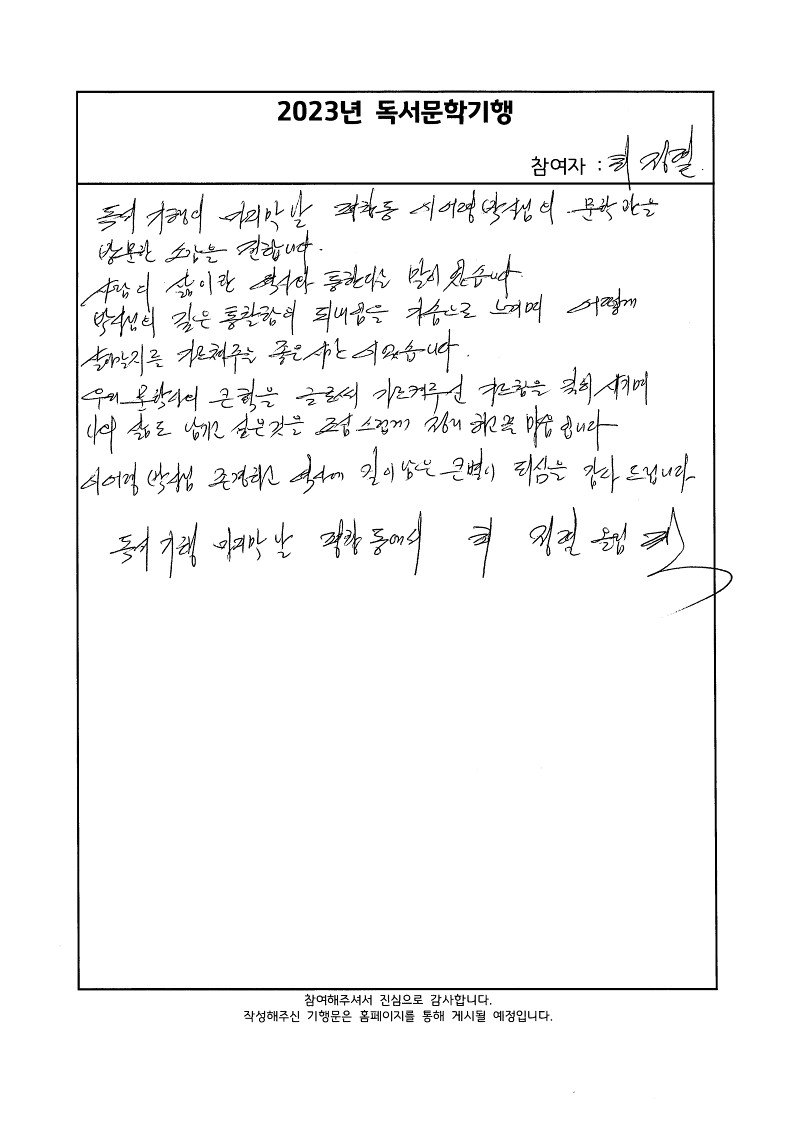 2023년 독서문학기행
참여자 : 피 정열
독서 기행의 마지막 날 평창동 이어령 박사님의 문학관을
방문한 소감을 전합니다.
사람의 삶이란 역사와 통한다는 말이 있습니다
박사님의 깊은 통찰함의 되내임을 가슴으로 느끼며 어떻게
살아갈지를 가르쳐주는 좋은 시간 이었습니다.
우리 문학사의 큰 획을 글로써 가르켜주신 가르침을 깊히 새기며
나의 삶도 남기고 싶은것을 조심스럽게 정리 하고픈 마음 입니다
이어령 박사님 존경하고 역사에 길이 남은 큰별이 되심을 감사 드립니다
독서 기행 마지막 날 평창동에서 피 정열 올림
참여해주셔서 진심으로 감사합니다.
작성해주신 기행문은 홈페이지를 통해 게시될 예정입니다.